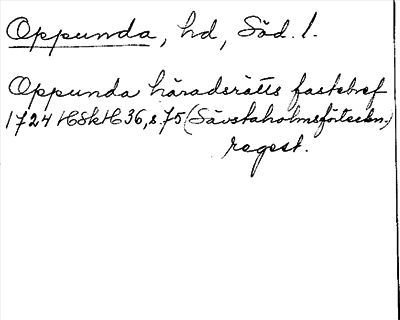 Oppunda, hd, Söd. l.
Oppunda häradsrätts fastebref
1724 HSkH 36, s. 75 (Säfstaholmsförteckn.)
regest.